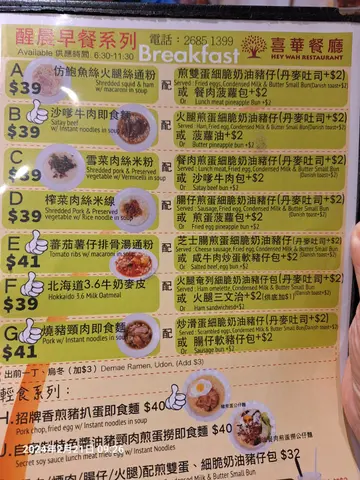 醒晨早餐系列 電話：2685 1399
Available 供應時間：6:30-11:30
Breakfast
喜華餐廳
HEY WAH RESTAURANT
A 仿鮑魚絲火腿絲通粉
$39 Shredded squid & ham w/ macaroni in soup
配
煎雙蛋細脆奶油豬仔(丹麥吐司+$2)
Served : Fried eggs, Condensed Milk & Butter Small Bun (Danish toast+$2)
或 餐肉菠蘿包+$2
Or Lunch meat pineapple bun +$2
B 沙嗲牛肉即食麵
$39 Satay beef w/ Instant noodles in soup
配
火腿煎蛋細脆奶油豬仔(丹麥吐司+$2)
Served : Ham, Fried egg, Condensed Milk & Butter Small Bun (Danish toast+$2)
或 菠蘿油+$2
Or Butter pineapple bun +$2
C 雪菜肉絲米粉
$39 Shredded Pork & Preserved vegetable w/ Vermicelli in soup
配
餐肉煎蛋細脆奶油豬仔(丹麥吐司+$2)
或 沙嗲牛肉包+$2
Or Satay beef bun +$2
D 榨菜肉絲米線
$39 Shredded Pork & Preserved vegetable w/ Rice noodle in soup
配
腸仔煎蛋細脆奶油豬仔(丹麥吐司+$2)
Served : Sausage, Fried egg, Condensed Milk & Butter Small Bun (Danish toast+$2)
或 煎蛋菠蘿包+$2
Or Fried egg pineapple bun +$2
E 蕃茄薯仔排骨湯通粉
$41 Tomato ribs w/ macaroni in soup
配
芝士腸煎蛋細脆奶油豬仔(丹麥吐司+$2)
或 咸牛肉炒蛋軟豬仔包+$2
Or Salted beef, egg bun +$2
F 北海道3.6牛奶麥皮
$39 Hokkaido 3.6 Milk Oatmeal
配
火腿奄列細脆奶油豬仔(丹麥吐司+$2)
Served : Ham omelette, Condensed Milk & Butter Small Bun (Danish toast+$2)
或 火腿三文治+$2(烘底加$1)
Or Ham sandwiches+$2
G 燒豬頸肉即食麵
$41 Pork w/ Instant noodles in soup
配
炒滑蛋細脆奶油豬仔(丹麥吐司+$2)
Served : Scrambled egg, Condensed Milk & Butter Small Bun (Danish toast+$2)
或 腸仔軟豬仔包+$2
Or Sausage bun +$2
出前一丁、烏冬 (加$3) Demae Ramen, Udon, (Add $3)
輕食系列：
H. 招牌香煎豬扒蛋即食麵 $40
Pork chop, fried egg w/ Instant noodles in soup
豬扒蛋公仔麵
秘制特色豉油豬頸肉煎蛋撈即食麵 $40
Secret soy sauce lunch meat fried egg w/ Instant Noodles
2025年1月21日 09:26
(煙肉/腸仔/火腿)配煎雙蛋、細脆奶油豬仔包 $32